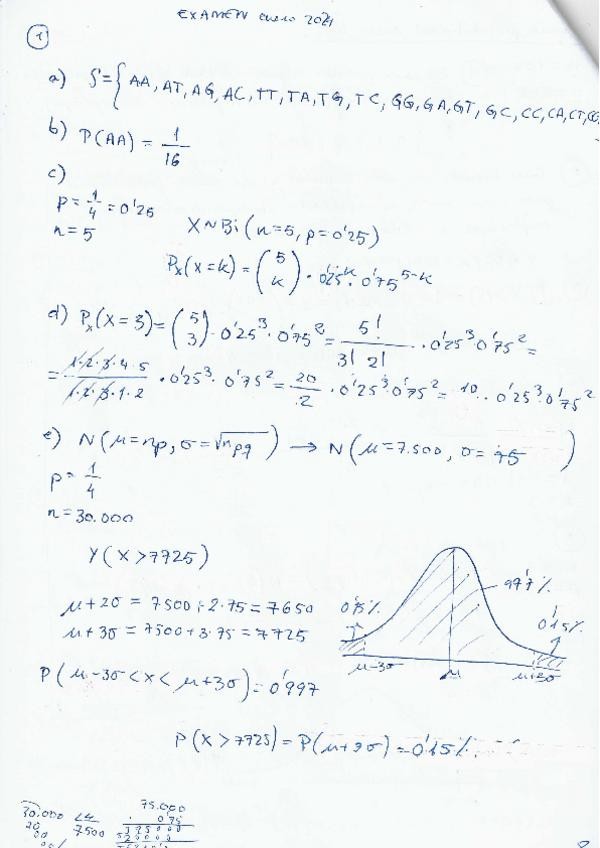 EXAMEN enero 2021
1
a) S={AA, AT, AG, AC, TT, TA, TG, TC, GG, GA, GT, GC, CC, CA, CT, CG
b) P(AA) = 1/16
c)
p = 1/4 = 0'25
n = 5 X~Bi(n=5, p=0'25)
Px(X=k) = (5 k) · 0'25^k · 0'75^5-k
d) Px(X=3) = (5 3) · 0'25^3 · 0'75^2 = 5!/3! 2! · 0'25^3 · 0'75^2 =
= 1·2·3·4·5/1·2·3·1·2 · 0'25^3 · 0'75^2 = 20/2 · 0'25^3 · 0'75^2 = 10 · 0'25^3 · 0'75^2
e) N(μ=np, σ=√npq) → N(μ=7.500, σ=75)
p = 1/4
n = 30.000
Y(X>7725)
μ+2σ = 7500+2·75 = 7650
μ+3σ = 7500+3·75 = 7725
P(μ-3σ<X<μ+3σ) = 0'997
0'15%
99'7%
0'15%
μ-3σ
μ
μ+3σ
P(X>7725) = P(μ+3σ) = 0'15%
30.000 4
20 7500
00
75.000
0'75
375000